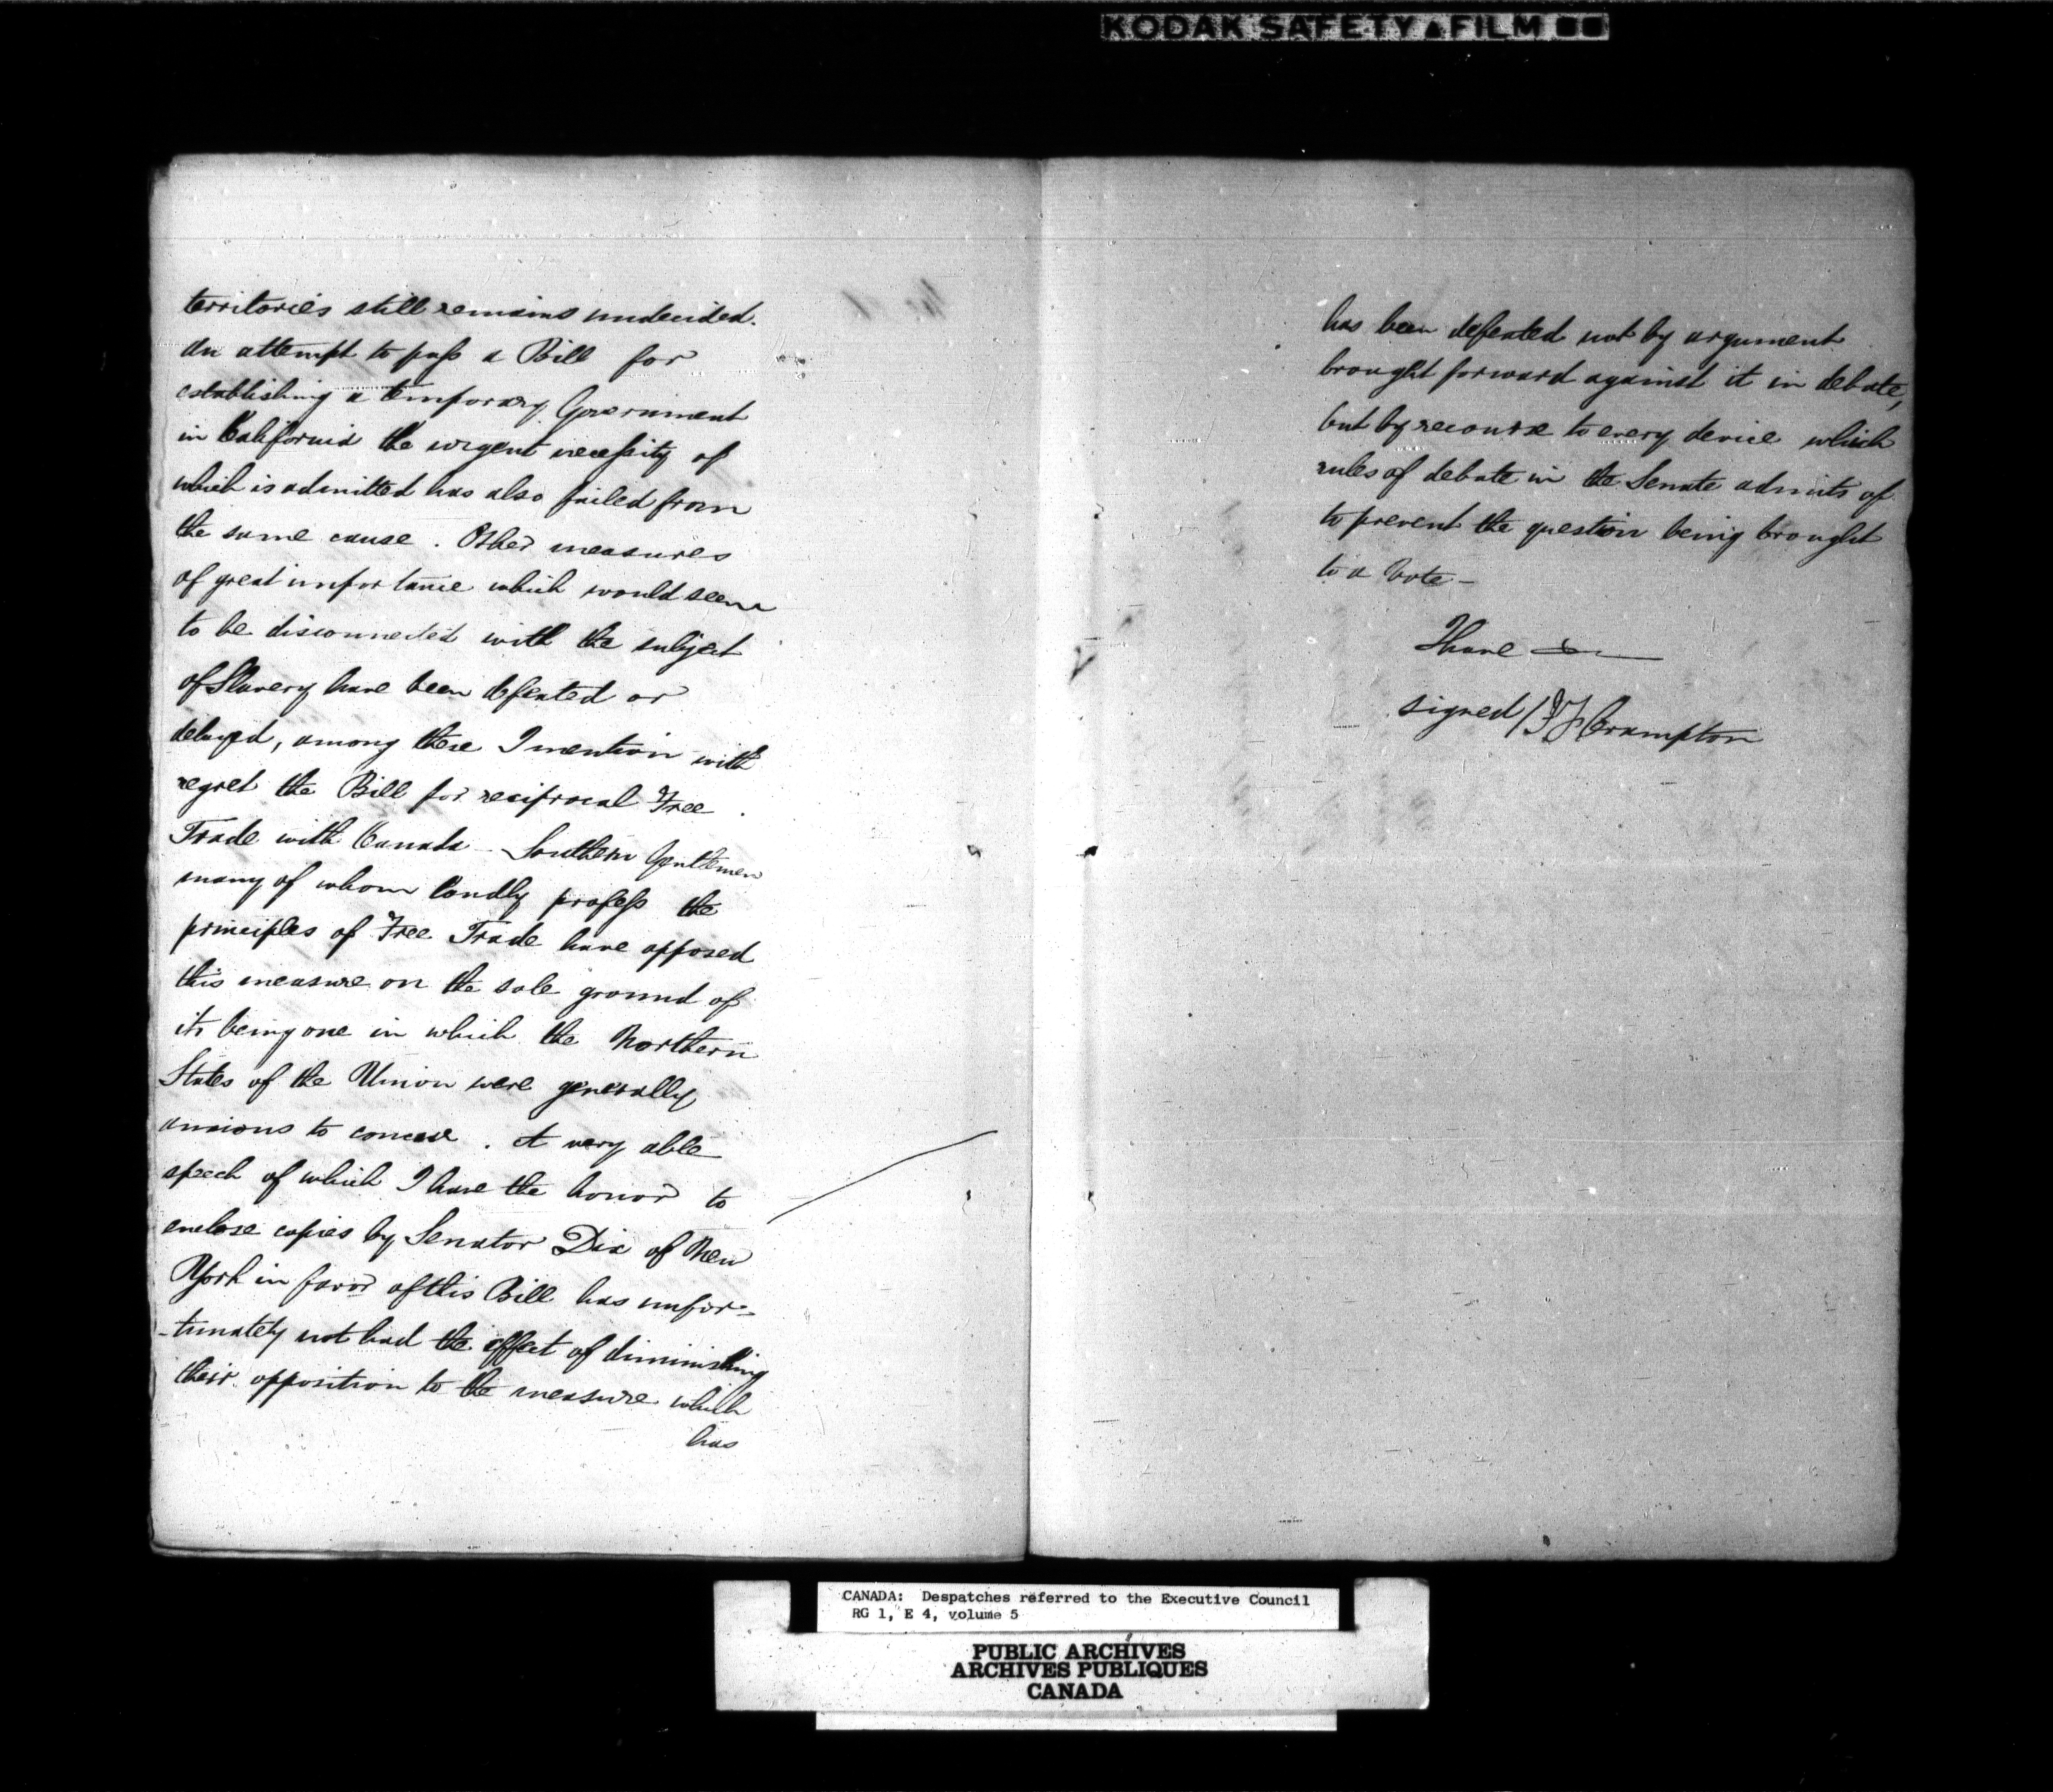 KODAK SAFETY FILM
territories still remains undecided.
An attempt to pass a Bill for
establishing a temporary Government
in California the urgent necessity of
which is admitted has also failed from
the same cause. Other measures
of great importance which would seem
to be disconnected with the subject
of Slavery have been defeated or
delayed, among these I mention with
regret the Bill for reciprocal Free
Trade with Canada - Southern Gentlemen
many of whom loudly profess the
principles of Free Trade have opposed
this measure on the sole ground of
its being one in which the Northern
States of the Union were generally
anxious to
. A very able
speech of which I have the honor to
enclose copies by Senator Dix of New
York in favor of this Bill has unfor-
-tunately not had the effect of diminishing
their opposition to the measure which
has
has been defeated not by argument
brought forward against it in debate,
but by recourse to every device which
rules of debate in the Senate admits of
to prevent the question being brought
to a Vote -
I have
signed / J F Crampton
CANADA: Despatches referred to the Executive Council
RG 1, E 4, volume 5
PUBLIC ARCHIVES
ARCHIVES PUBLIQUES
CANADA